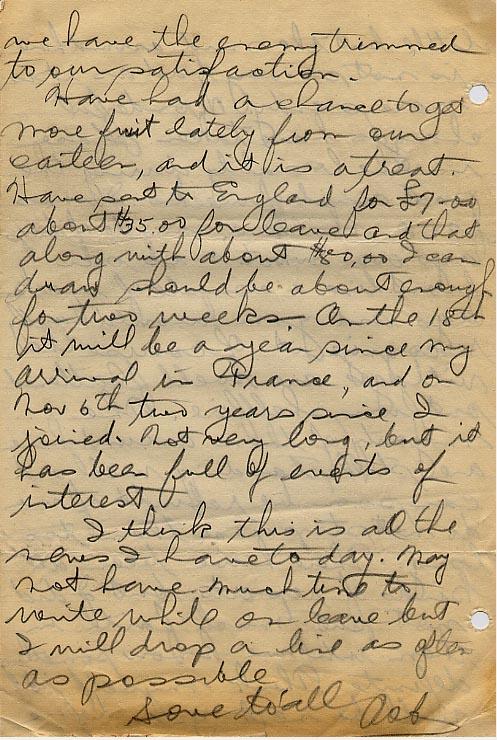 we have the enemy trimmed
to our satisfaction.
Have had a chance to get
more fruit lately from our
canteen, and it is a treat.
Have sent to England for £7-00
about $35.00 for leave and that
along with about $80,00 I can
draw should be about enough
for two weeks. On the 18th
it will be a year since my
arrival in France, and on
Nov 6th two years since I
joined. Not very long, but it
has been full of events of
interest
I think this is all the
news I have to day. May
not have much time to
write while on leave but
I will drop a line as often
as possible
Love to all